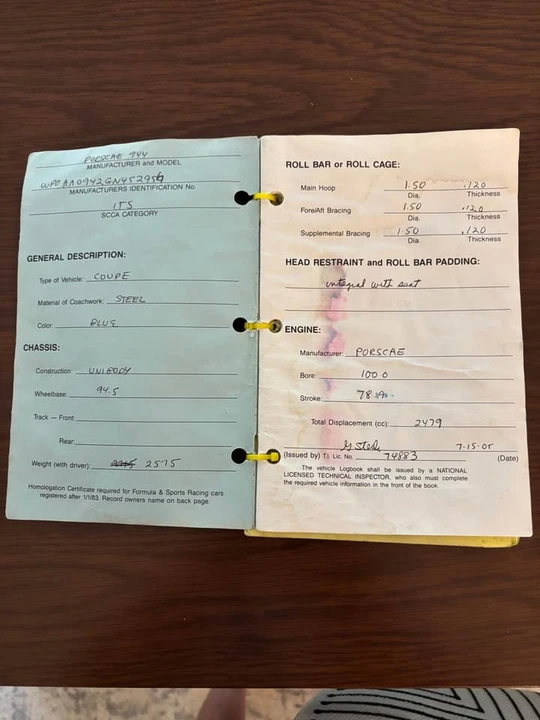 PORSCHE 944
MANUFACTURER and MODEL
WPOAA0942GN452956
MANUFACTURERS IDENTIFICATION No.
ITS
SCCA CATEGORY
GENERAL DESCRIPTION:
Type of Vehicle: COUPE
Material of Coachwork: STEEL
Color BLUE
CHASSIS:
Construction: UNIBODY
Wheelbase: 94.5
Track — Front:
Rear:
Weight (with driver): 2575
Homologation Certificate required for Formula & Sports Racing cars
registered after 1/1/83. Record owners name on back page.
ROLL BAR or ROLL CAGE:
Main Hoop 1.50 .120
Dia. Thickness
Fore/Aft Bracing 1.50 .120
Dia. Thickness
Supplemental Bracing 1.50 .120
Dia. Thickness
HEAD RESTRAINT and ROLL BAR PADDING:
integral with seat
ENGINE:
Manufacturer: PORSCHE
Bore: 100.0
Stroke: 78.9
Total Displacement (cc): 2479
7-15-05
(Issued by) T.I. Lic. No. 74883 (Date)
The vehicle Logbook shall be issued by a NATIONAL
LICENSED TECHNICAL INSPECTOR, who also must complete
the required vehicle information in the front of the book.